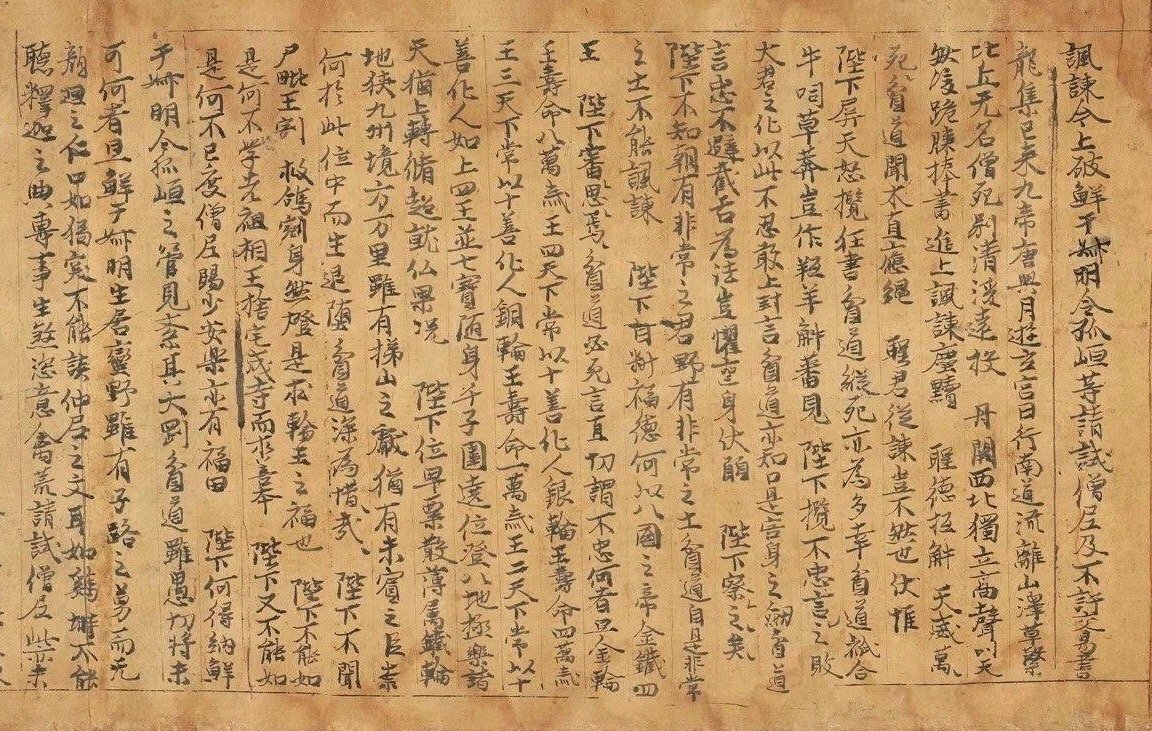 諷諫今上破鮮于叔明令狐峘等請試僧尼及不許交易書
龍集己未九帝唐興月遊玄宮日行南道流離山澤草繫
比丘无名僧死別清溪遠投 丹闕西北獨立高聲叫天
無後跪膝捧書進上諷諫塵黷 聖德招解 天威萬
死貧道聞木直應繩 聖君從諫豈不然也伏惟
陛下屏天怒攬狂書貧道縱死亦為多幸貧道孤合
牛呞草奔豈作羝羊觸蕃見 陛下攬不忠言之敗
大君之化以此不忍敢上封言貧道亦知口是害身之 貧道
言忠不避截舌為法豈懼喪身伏願 陛下察之矣
陛下不知朝有非常之君野有非常之士貧道自是非常
之士不能諷諫 陛下自斷福德何如八國之帝金鐵四
王 陛下審思焉貧道若死言直切謂不忠何者且金輪
王壽命八萬歲王四天下常以十善化人銀輪王壽命四萬歲
王三天下常以十善化人銅輪王壽命一萬歲王二天下常以十
善化人如上四王並七寶隨身千子圍遶位登八地極樂諸
天猶上轉脩超就仏果况 陛下位卑粟散薄属鐵輪
地狹九州境方万里雖有梯山之獻猶有未賓之臣柰
何於此位中而生退墮貧道深為惜哉 陛下不聞
尸毗王割 救鴿剜身然燈是求輪王之福也 陛下不能如
是何不學老祖相王捨宅戎寺而求喜奉 陛下又不能如
是何不已度僧尼賜少安樂亦有福田 陛下何得納鮮
于叔明令狐峘之管見紊其大罰貧道雖愚切將未
可何者且鮮于叔明生居蠻野雖有子路之勇而无
顏迴之仁口如 不能談仲尼之文耳如 不能
聽釋迦之典專事生敛恣意禽荒請試僧尼此柴未